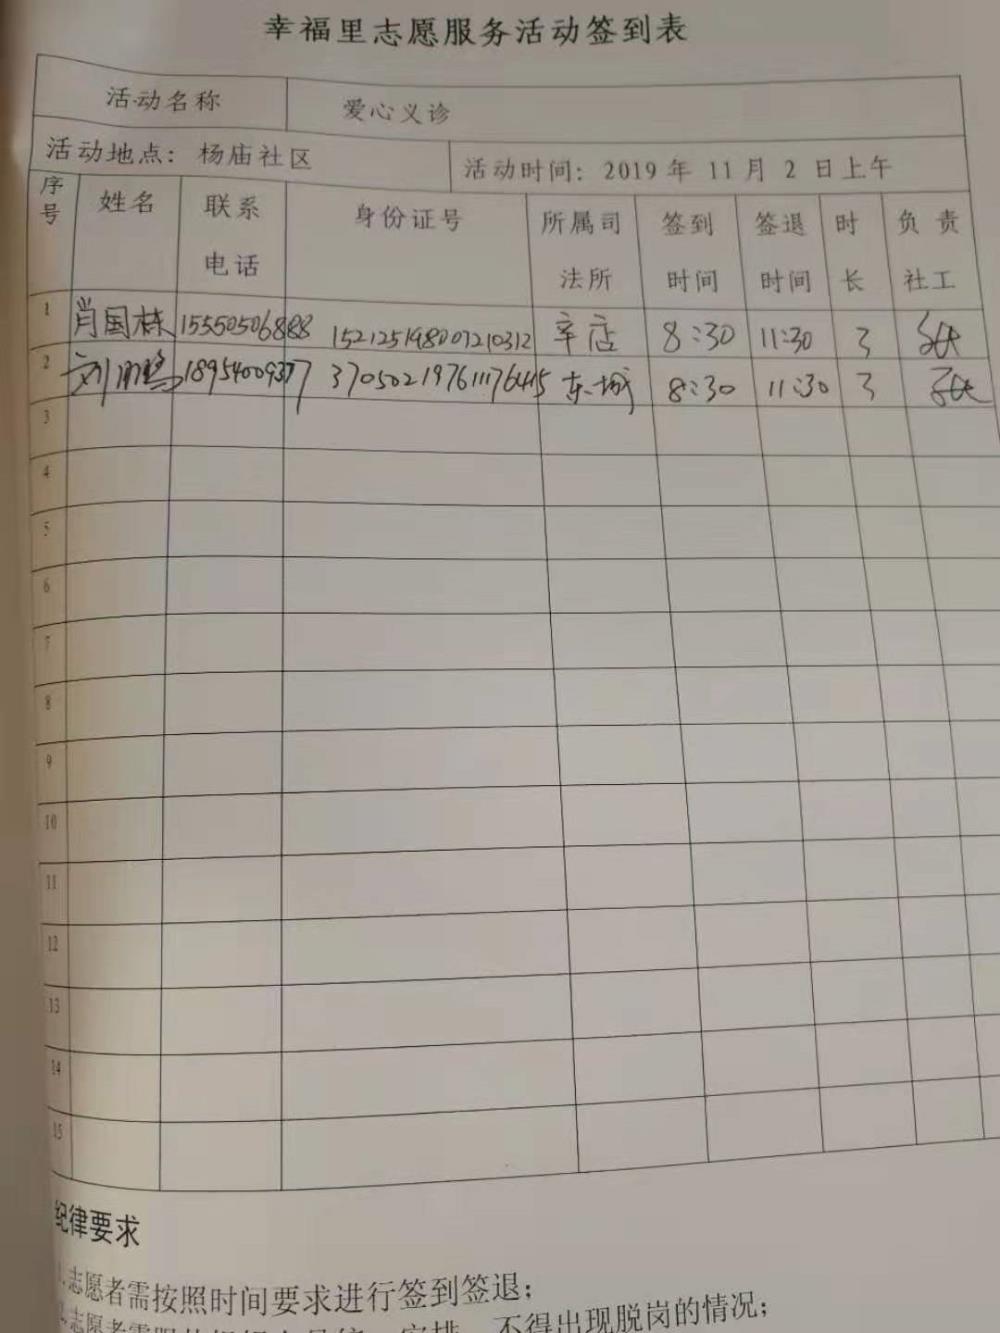 幸福里志愿服务活动签到表
活动名称 爱心义诊
活动地点：杨庙社区 活动时间：2019年11月2日上午
序号 姓名 联系电话 身份证号 所属司法所 签到时间 签退时间 时长 负责社工
1 肖国栋 15550506888 152125198007210312 辛店 8:30 11:30 3
2 刘鹏 18954009377 370502197611176415 东城 8:30 11:30 3
3
4
5
6
7
8
9
10
11
12
13
14
15
纪律要求
1.志愿者需按照时间要求进行签到签退；
2.志愿者需 安排，不得出现脱岗的情况；